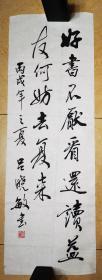 好書不厭看還讀益
友何妨去复来
丙戌年之夏吕晓敏書